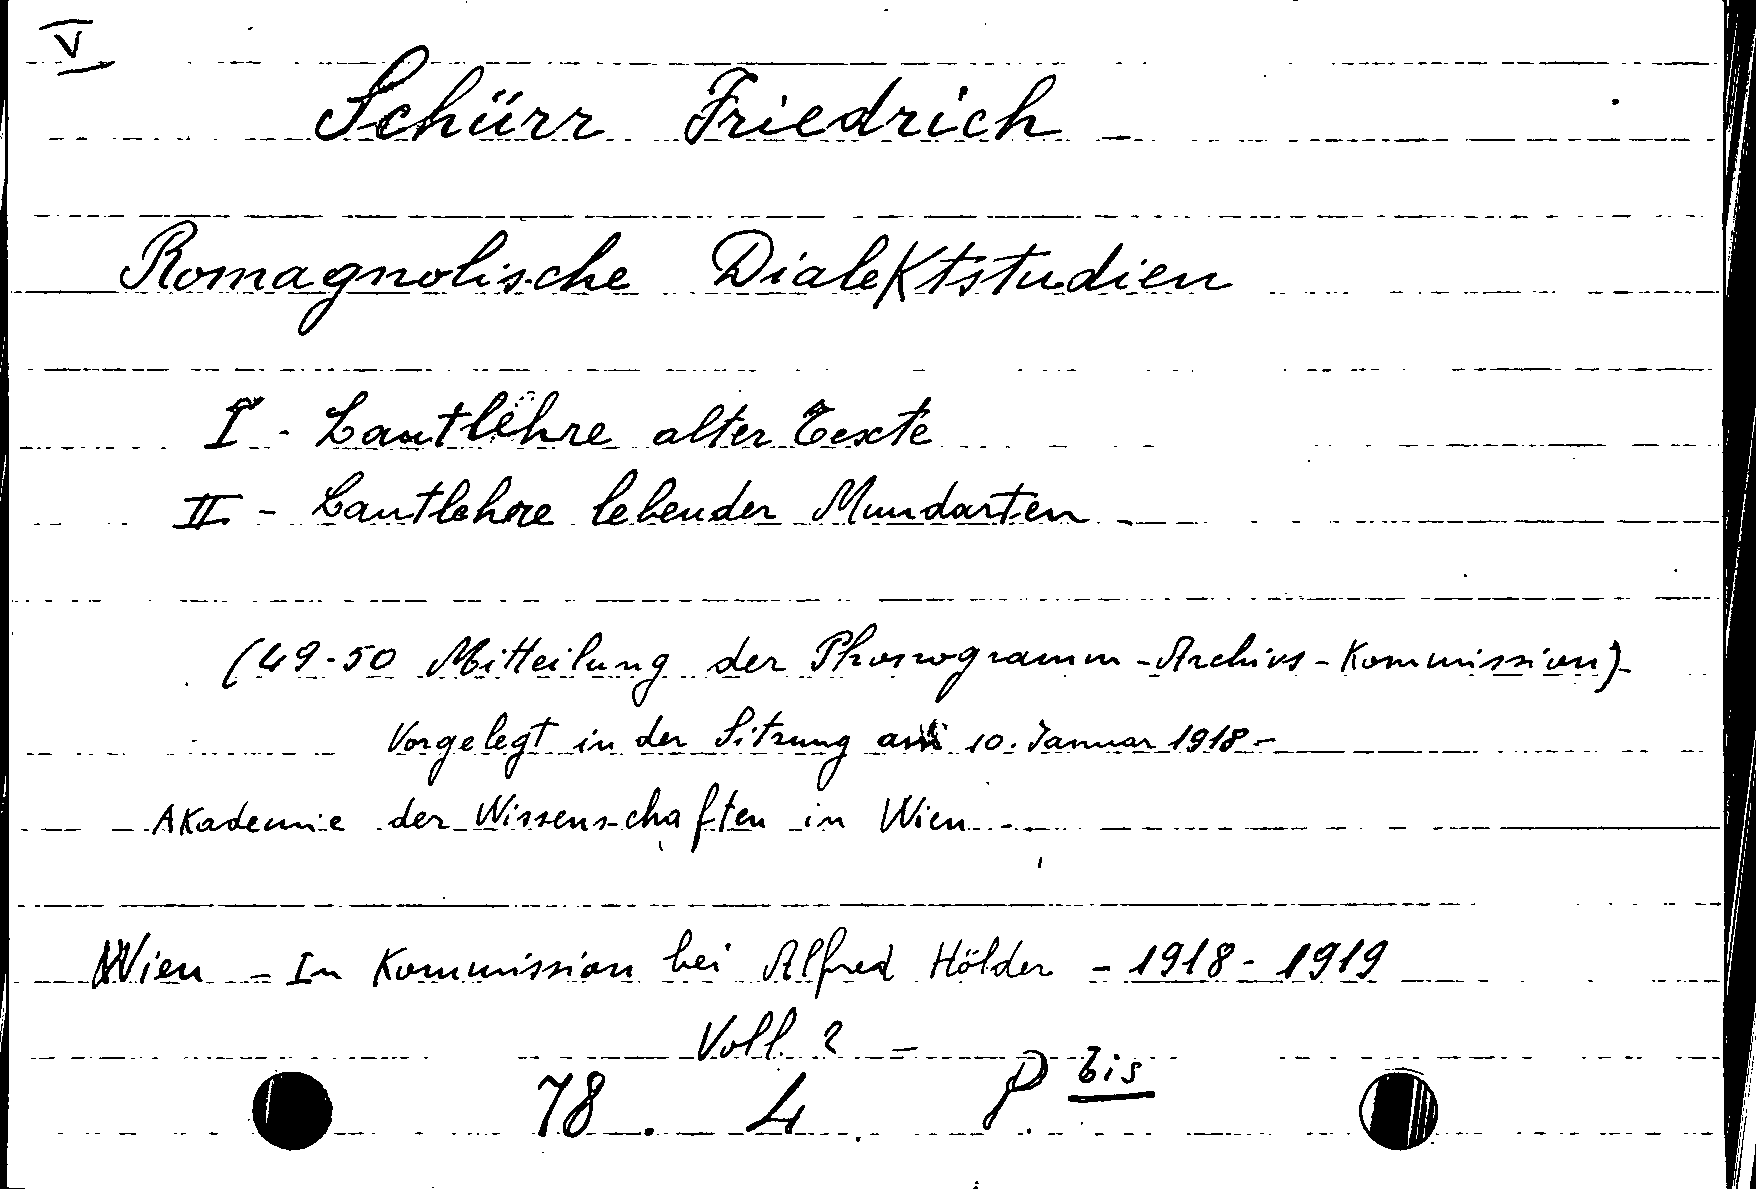 V
Schürr Friedrich
Romagnolische Dialektstudien
I - Lautlehre alter Texte
II - Lautlehre lebender Mundarten
(49-50 Mitteilung der Phonogramm-Archivs-Kommission)
Vorgelegt in der Sitzung am 10. Januar 1918 -
Akademie der Wissenschaften in Wien -
Wien - In Kommission bei Alfred Hölder - 1918 - 1919
Voll. 2 -
78. 4. P bis